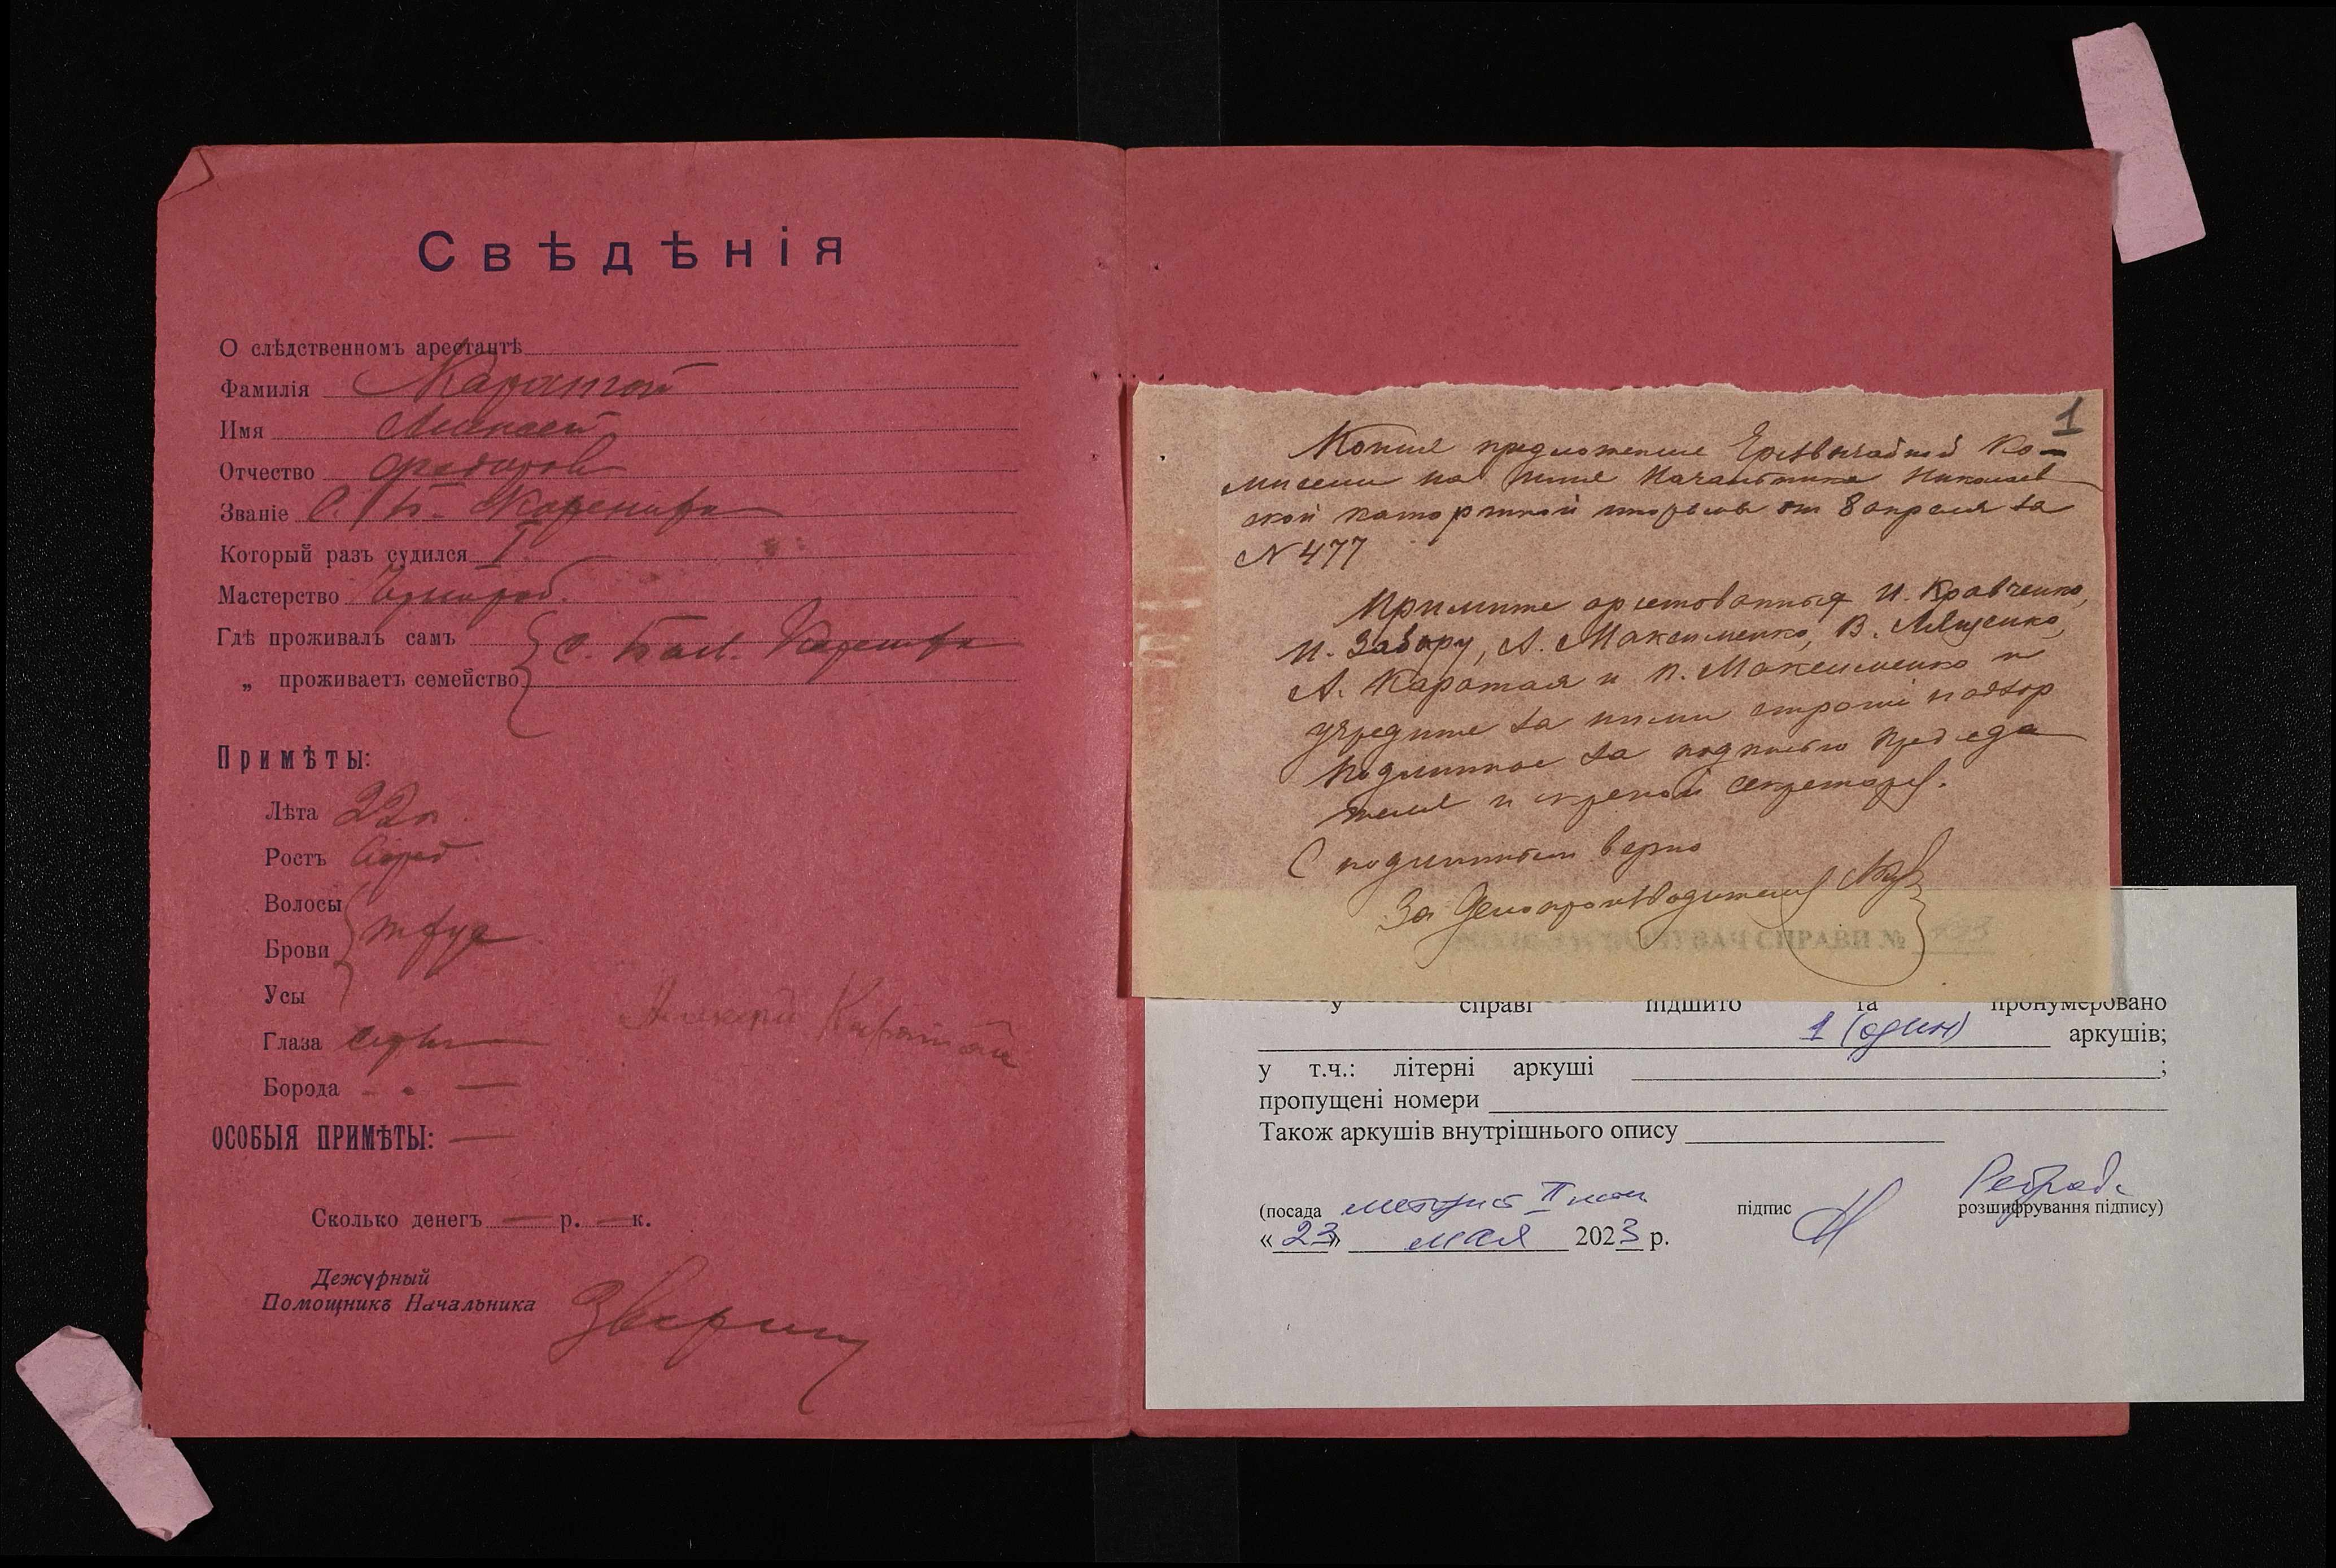 Свѣдѣнія
О слѣдственномъ арестантѣ
Фамилія Каратай
Имя Алексей
Отчество Федоров
Званіе С. Б.
Который разъ судился I
Мастерство Чернораб.
Гдѣ проживалъ самъ
с. Бал.
„ проживаетъ семейство
Примѣты:
Лѣта 22 л
Ростъ Сред
Волосы
Брови
Усы
Глаза серы
Борода - " —
ОСОБЫЯ ПРИМѢТЫ: —
Алексей Каратай
Сколько денегъ — р. — к.
Дежурный
Помощникъ Начальника
1
Копия предложение Чрезвычайной Ко-
мисеии на имя Начальника Николаев
ской каторжной тюрьмы от 8 апреля за
N 477
Примите арестованных И. Кравченко,
И. Забару, А. Максименко, В. Лященко,
А. Каратая и П. Максименко и
учредите за ними строгий надзор
Подлинное за подписью Председа
теля и скрепой секретаря.
С подлинным верно
За Делопроизводителя
СПРАВИ №
У справі підшито та пронумеровано
1 (один) аркушів;
у т.ч.: літерні аркуші ;
пропущені номери
Також аркушів внутрішнього опису
(посада методист II кат. підпис розшифрування підпису)
« 23 » мая 2023 р.